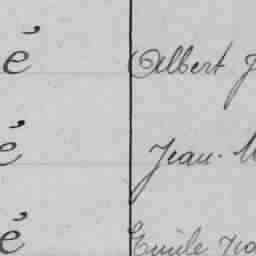 é Albert J
é Jean-M
é Emile Jea